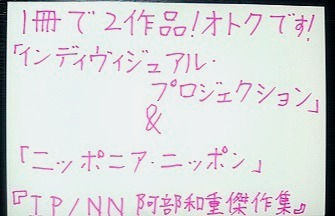 1冊で2作品!オトクです!
「インディヴィジュアル・
プロジェクション」
&
「ニッポニア・ニッポン」
『IP/NN 阿部和重傑作集』